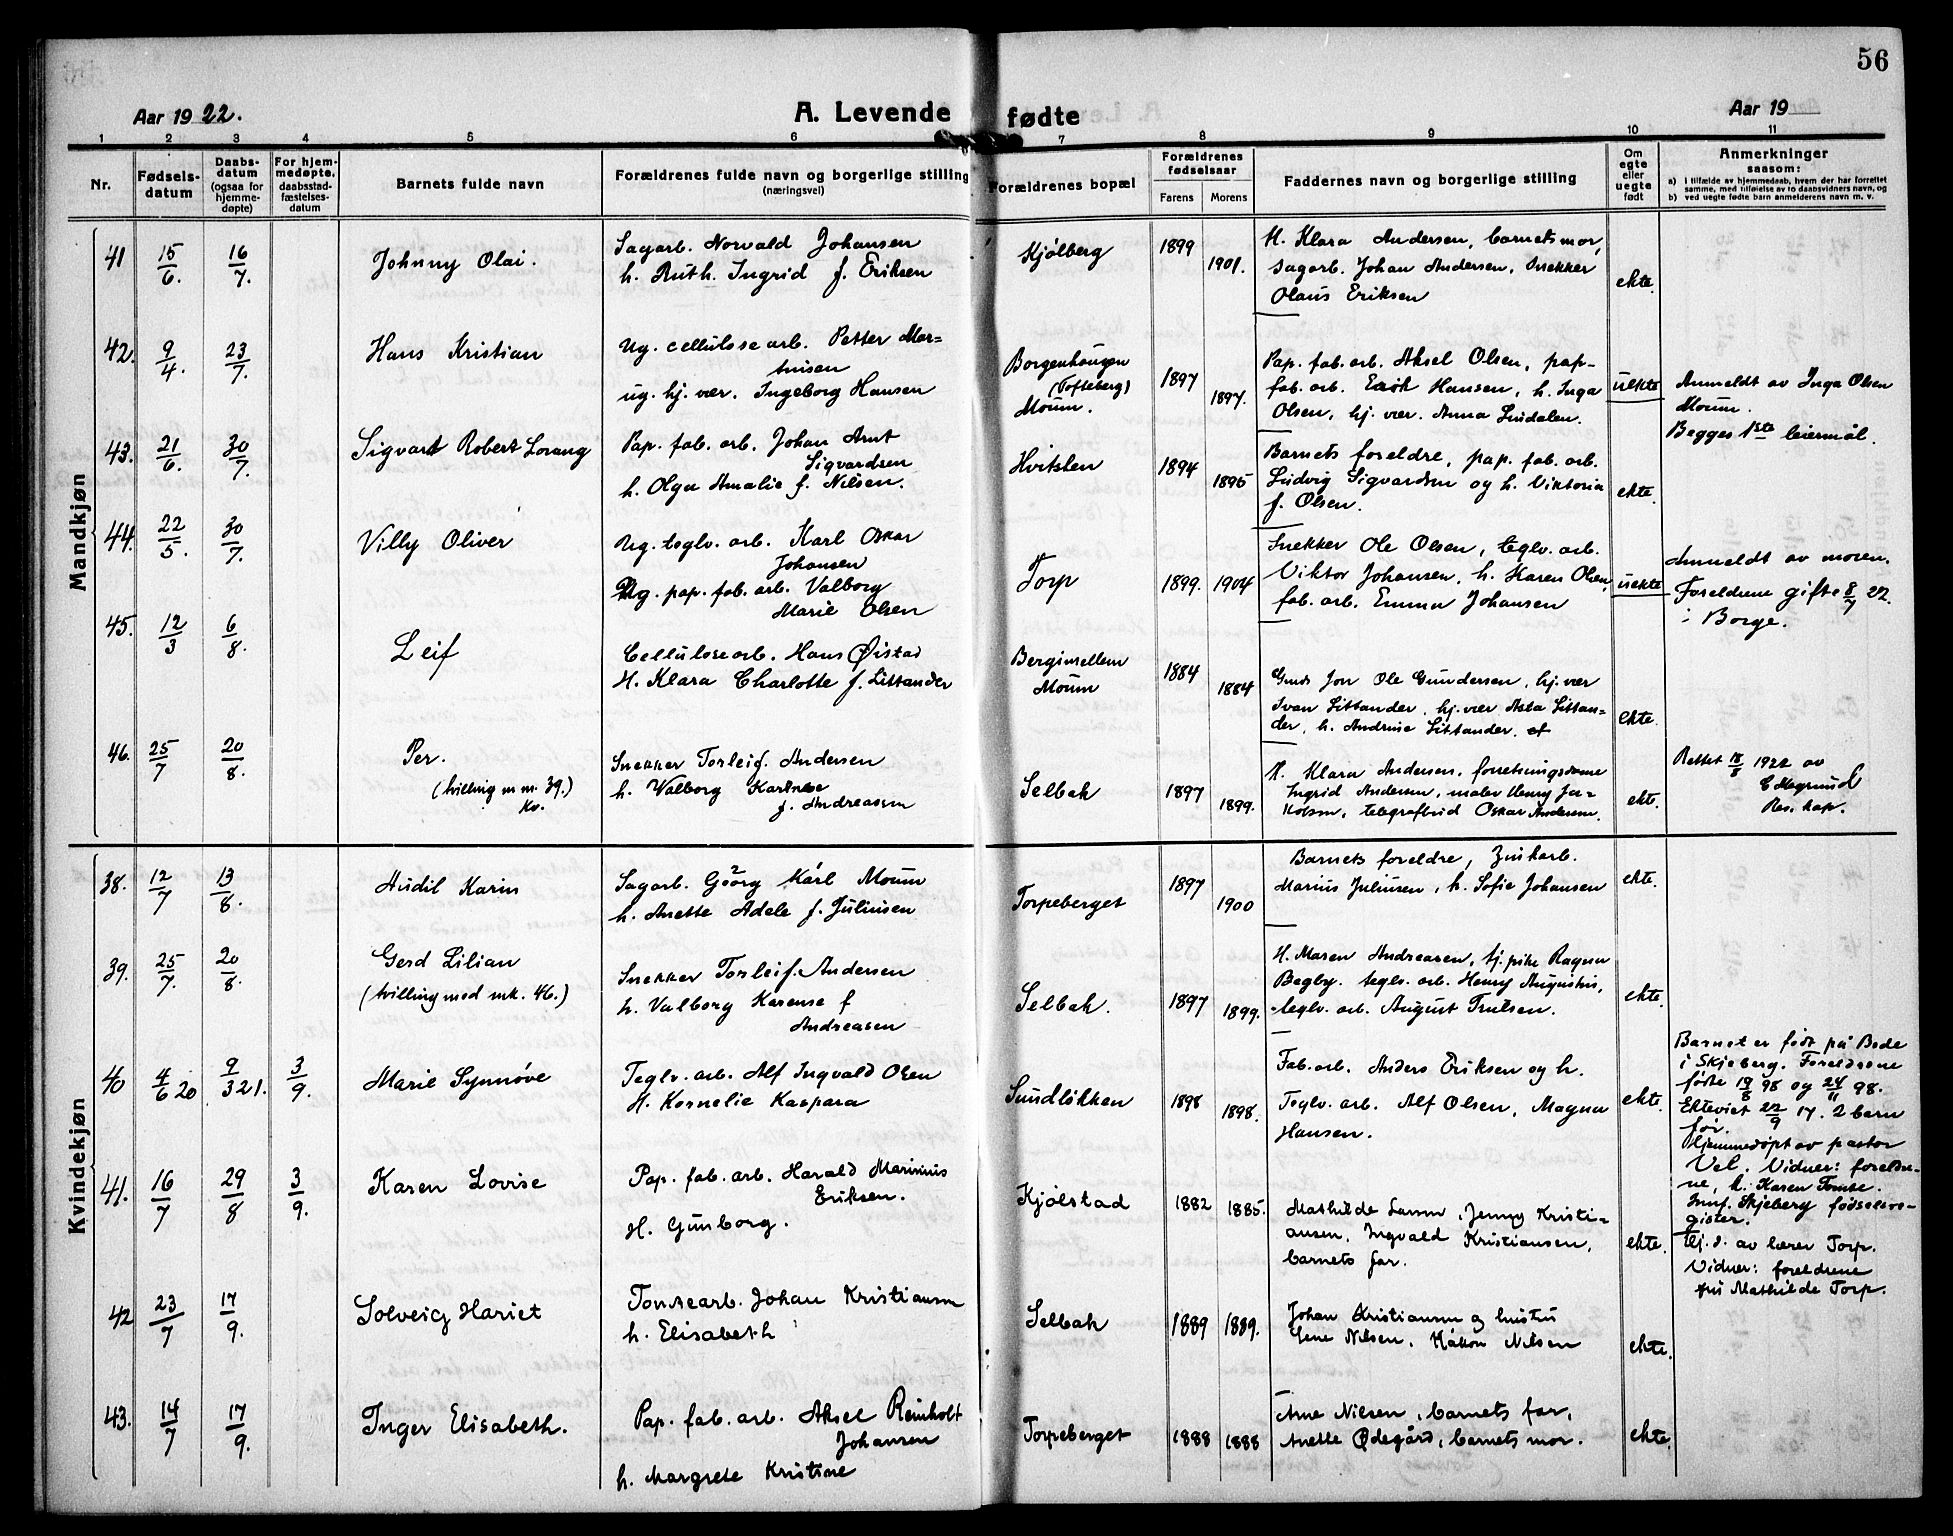 56
Aar 1922.
A. Levende fødte
Aar 19
1 2 3 4 5 6 7 8 9 10 11
Nr.
Fødsels-
datum
Daabs-
datum
(ogsaa for
hjemme-
døpte)
For hjem-
medøpte,
daabsstad-
fæstelses-
datum
Barnets fulde navn
Forældrenes fulde navn og borgerlige stilling
(næringsvei)
Forældrenes bopæl
Forældrenes
fødselsaar
Farens Morens
Faddernes navn og borgerlige stilling
Om
egte
eller
uegte
født
Anmerkninger
saasom:
a) i tilfælde av hjemmedaab, hvem der har forrettet
samme, med tilføielse av to daabsvidners navn, og
b) ved uegte fødte barn anmelderens navn m. v.
Mandkjøn
41 15/6. 16/7. Johnny Olai.
Sagarb. Norvald Johansen
h. Ruth. Ingrid f. Eriksen
Kjølberg 1899 1901.
H. Klara Andersen, barnets mor,
sagarb. Johan Andersen, snekker
Olaus Eriksen
ekte.
42. 9/4. 23/7. Hans Kristian
Ug. cellulosearb. Petter Mar-
tinsen
ug. hj. vær. Ingeborg Hansen
Borgenhaugen
(Tofteberg)
Moum.
1897 1897.
Pap. fab. arb. Aksel Olsen, pap-
fab. arb. Hansen, h. Inga
Olsen, hj. vær. Anna Lindalen.
uekte
Anmeldt av Inga Olsen
Moum.
Begges 1ste leiermål.
43. 21/6. 30/7. Sigvart Robert Lorang
Pap. fab. arb. Johan Arnt
Sigvardsen
h. Olga Amalie f. Nilsen.
Hvitsten 1894 1895
Barnets foreldre, pap. fab. arb.
Ludvig Sigvardsen og h. Viktoria
f. Olsen.
ekte.
44. 22/5. 30/7. Villy Oliver
Ug. teglv. arb. Karl Oskar
Johansen
Ug. pap. fab. arb. Valborg
Marie Olsen
Torp 1899. 1904
Snekker Ole Olsen, teglv. arb.
Viktor Johansen, h. Karen Olsen,
fab. arb. Emma Johansen
uekte
Anmeldt av moren.
Foreldrene gifte 8/7 22.
i Borge.
45. 12/3 6/8. Leif
Cellulosearb. Hans Øistad
H. Klara Charlotte f. Littander
Moum
1884 1884
Ole Gundersen, hj. vær
Ivan Littander, hj. vær Asta Littan-
der, h. Andrine Littander.
ekte.
46. 25/7 20/8. Per.
(tvilling m nr. 39.)
Kv.
Snekker Torleif. Andersen
h. Valborg Karense
f. Andreassen
Selbak 1897 1899.
H. Klara Andersen, forretningsdame
Ingrid Andersen, maler Henry Ja-
kobsen, telegrafbud Oskar Andersen.
ekte.
Rettet 18/8 1922 av
Res. kap.
Kvindekjøn
38. 12/7 13/8. Audil Karin
Sagarb. Georg Karl Moum
h. Anette Adele f. Juliusen
Torpeberget 1897 1900
Barnets foreldre, Zinkarb.
Marius Juliusen, h. Sofie Johansen
ekte.
39. 25/7. 20/8. Gerd Lilian
(tvilling med mk. 46.)
Snekker Torleif. Andersen
h. Valborg Karense f
Andreasen
Selbak. 1897 1899.
H. Maren Andreasen, tj. pike Ragna
Begby. teglv. arb. Henry Augustus,
teglv. arb. August Trulsen.
ekte.
40 4/6 20 9/3 21. 3/9. Marie Synnøve
Teglv. arb. Alf Ingvald Olsen
H. Kornelie Kaspara
Sundløkken 1898 1898.
Fab. arb. Anders Eriksen og h.
Teglv. arb. Alf Olsen, Magna
Hansen.
ekte.
Barnet er født på Bede
i Skjeberg. Foreldrene
fødte 19/8 98 og 24/11 98.
Ekteviet 22/9 17. 2 barn
før.
Hjemmedøpt av pastor
Vel. Vidner: foreldre-
ne, h. Karen Tomte.
Innf. Skjeberg fødselsre-
gister.
41. 16/7 29/8 3/9. Karen Lovise
Pap. fab. arb. Harald Marinius
Eriksen.
H. Gunborg.
Kjølstad 1882 1885.
Mathilde Larsen, Jenny Kristi-
ansen, Ingvald Kristiansen,
barnets far.
ekte.
Hj. d. av lærer Torp.
Vidner: foreldrene
fru Mathilde Torp.
42 23/7 17/9. Solveig Hariet
Tomtearb. Johan Kristiansen
h. Elisabeth
Selbak 1889 1889.
Johan Kristiansen og hustru
Lene Nilsen, Håkon Nilsen
ekte.
43. 14/7 17/9. Inger Elisabeth.
Pap. fab. arb. Aksel Reinholt
Johansen
h. Margrete Kristine
Torpeberget 1888 1888
Arne Nilsen, barnets far,
Anette Ødegård, barnets mor.
ekte.